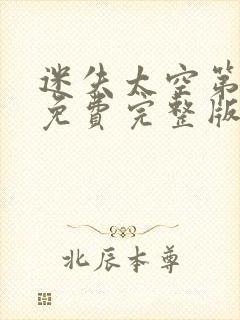 迷失太空第
免费完整版
北辰本尊